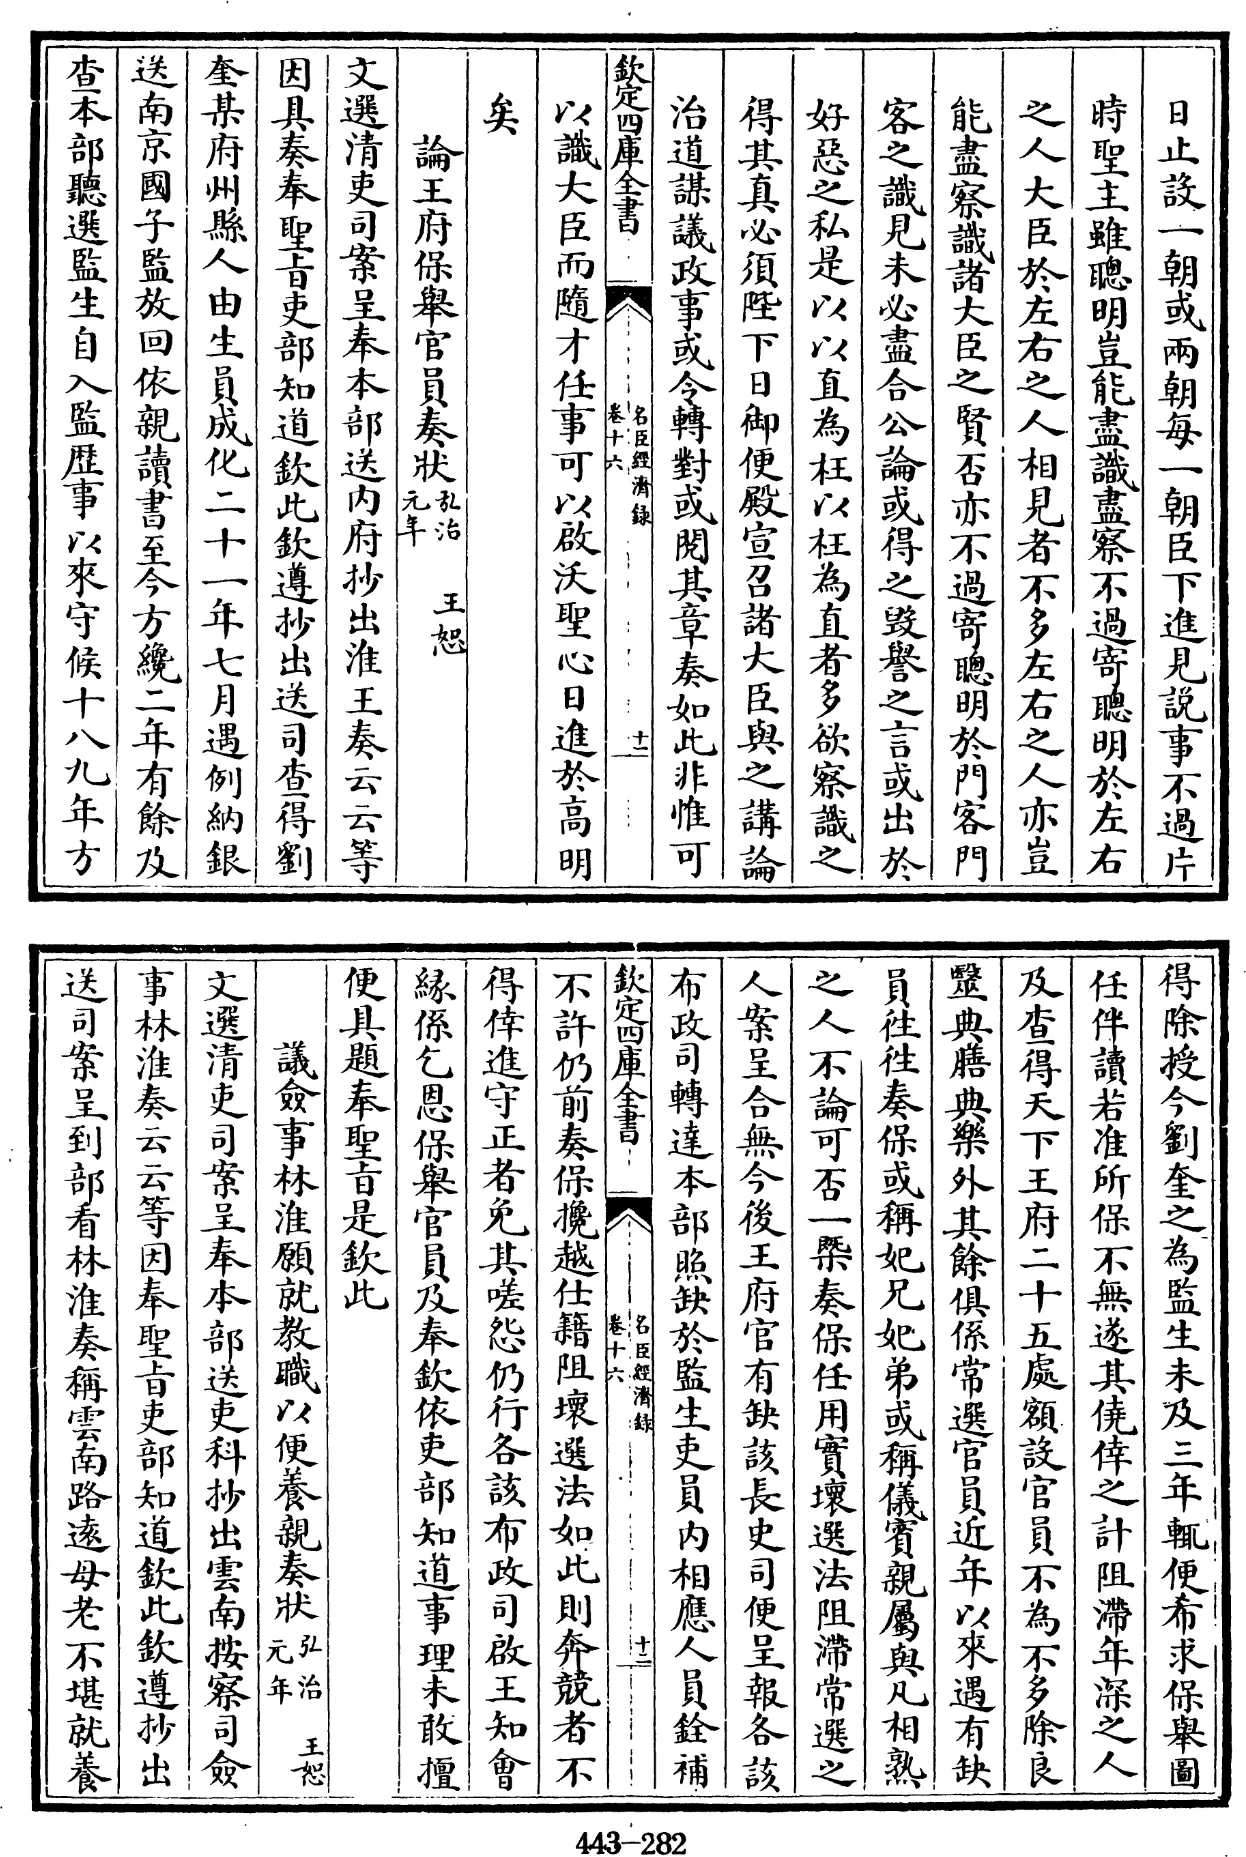 日止設一朝或兩朝每一朝臣下進見説事不過片
時聖主雖聰明豈能盡識盡察不過寄聰明於左右
之人大臣於左右之人相見者不多左右之人亦豈
能盡察識諸大臣之賢否亦不過寄聰明於門客門
客之識見未必盡合公論或得之毀譽之言或出於
好惡之私是以以直為枉以枉為直者多欲察識之
得其真必須陛下日御便殿宣召諸大臣與之講論
治道謀議政事或令轉對或閱其章奏如此非惟可
欽定四庫全書
名臣經濟録
卷十六
十一
以識大臣而隨才任事可以啟沃聖心日進於高明
矣
論王府保舉官員奏狀弘治元年 王恕
文選清吏司案呈奉本部送内府抄出淮王奏云云等
因具奏奉聖旨吏部知道欽此欽遵抄出送司查得劉
奎某府州縣人由生員成化二十一年七月遇例納銀
送南京國子監放回依親讀書至今方纔二年有餘及
查本部聽選監生自入監歴事以來守候十八九年方
得除授今劉奎之為監生未及三年輒便希求保舉圖
任伴讀若准所保不無遂其僥倖之計阻滯年深之人
及查得天下王府二十五處額設官員不為不多除良
毉典膳典樂外其餘俱係常選官員近年以來遇有缺
員往往奏保或稱妃兄妃弟或稱儀賓親屬與凡相熟
之人不論可否一槩奏保任用實壞選法阻滯常選之
人案呈合無今後王府官有缺該長史司便呈報各該
布政司轉達本部照缺於監生吏員内相應人員銓補
欽定四庫全書
名臣經濟録
卷十六
十二
不許仍前奏保攙越仕籍阻壞選法如此則奔競者不
得倖進守正者免其嗟怨仍行各該布政司啟王知會
縁係乞恩保舉官員及奉欽依吏部知道事理未敢擅
便具題奉聖旨是欽此
議僉事林淮願就教職以便養親奏狀弘治元年 王恕
文選清吏司案呈奉本部送吏科抄出雲南按察司僉
事林淮奏云云等因奉聖旨吏部知道欽此欽遵抄出
送司案呈到部看林淮奏稱雲南路逺母老不堪就養
443-282